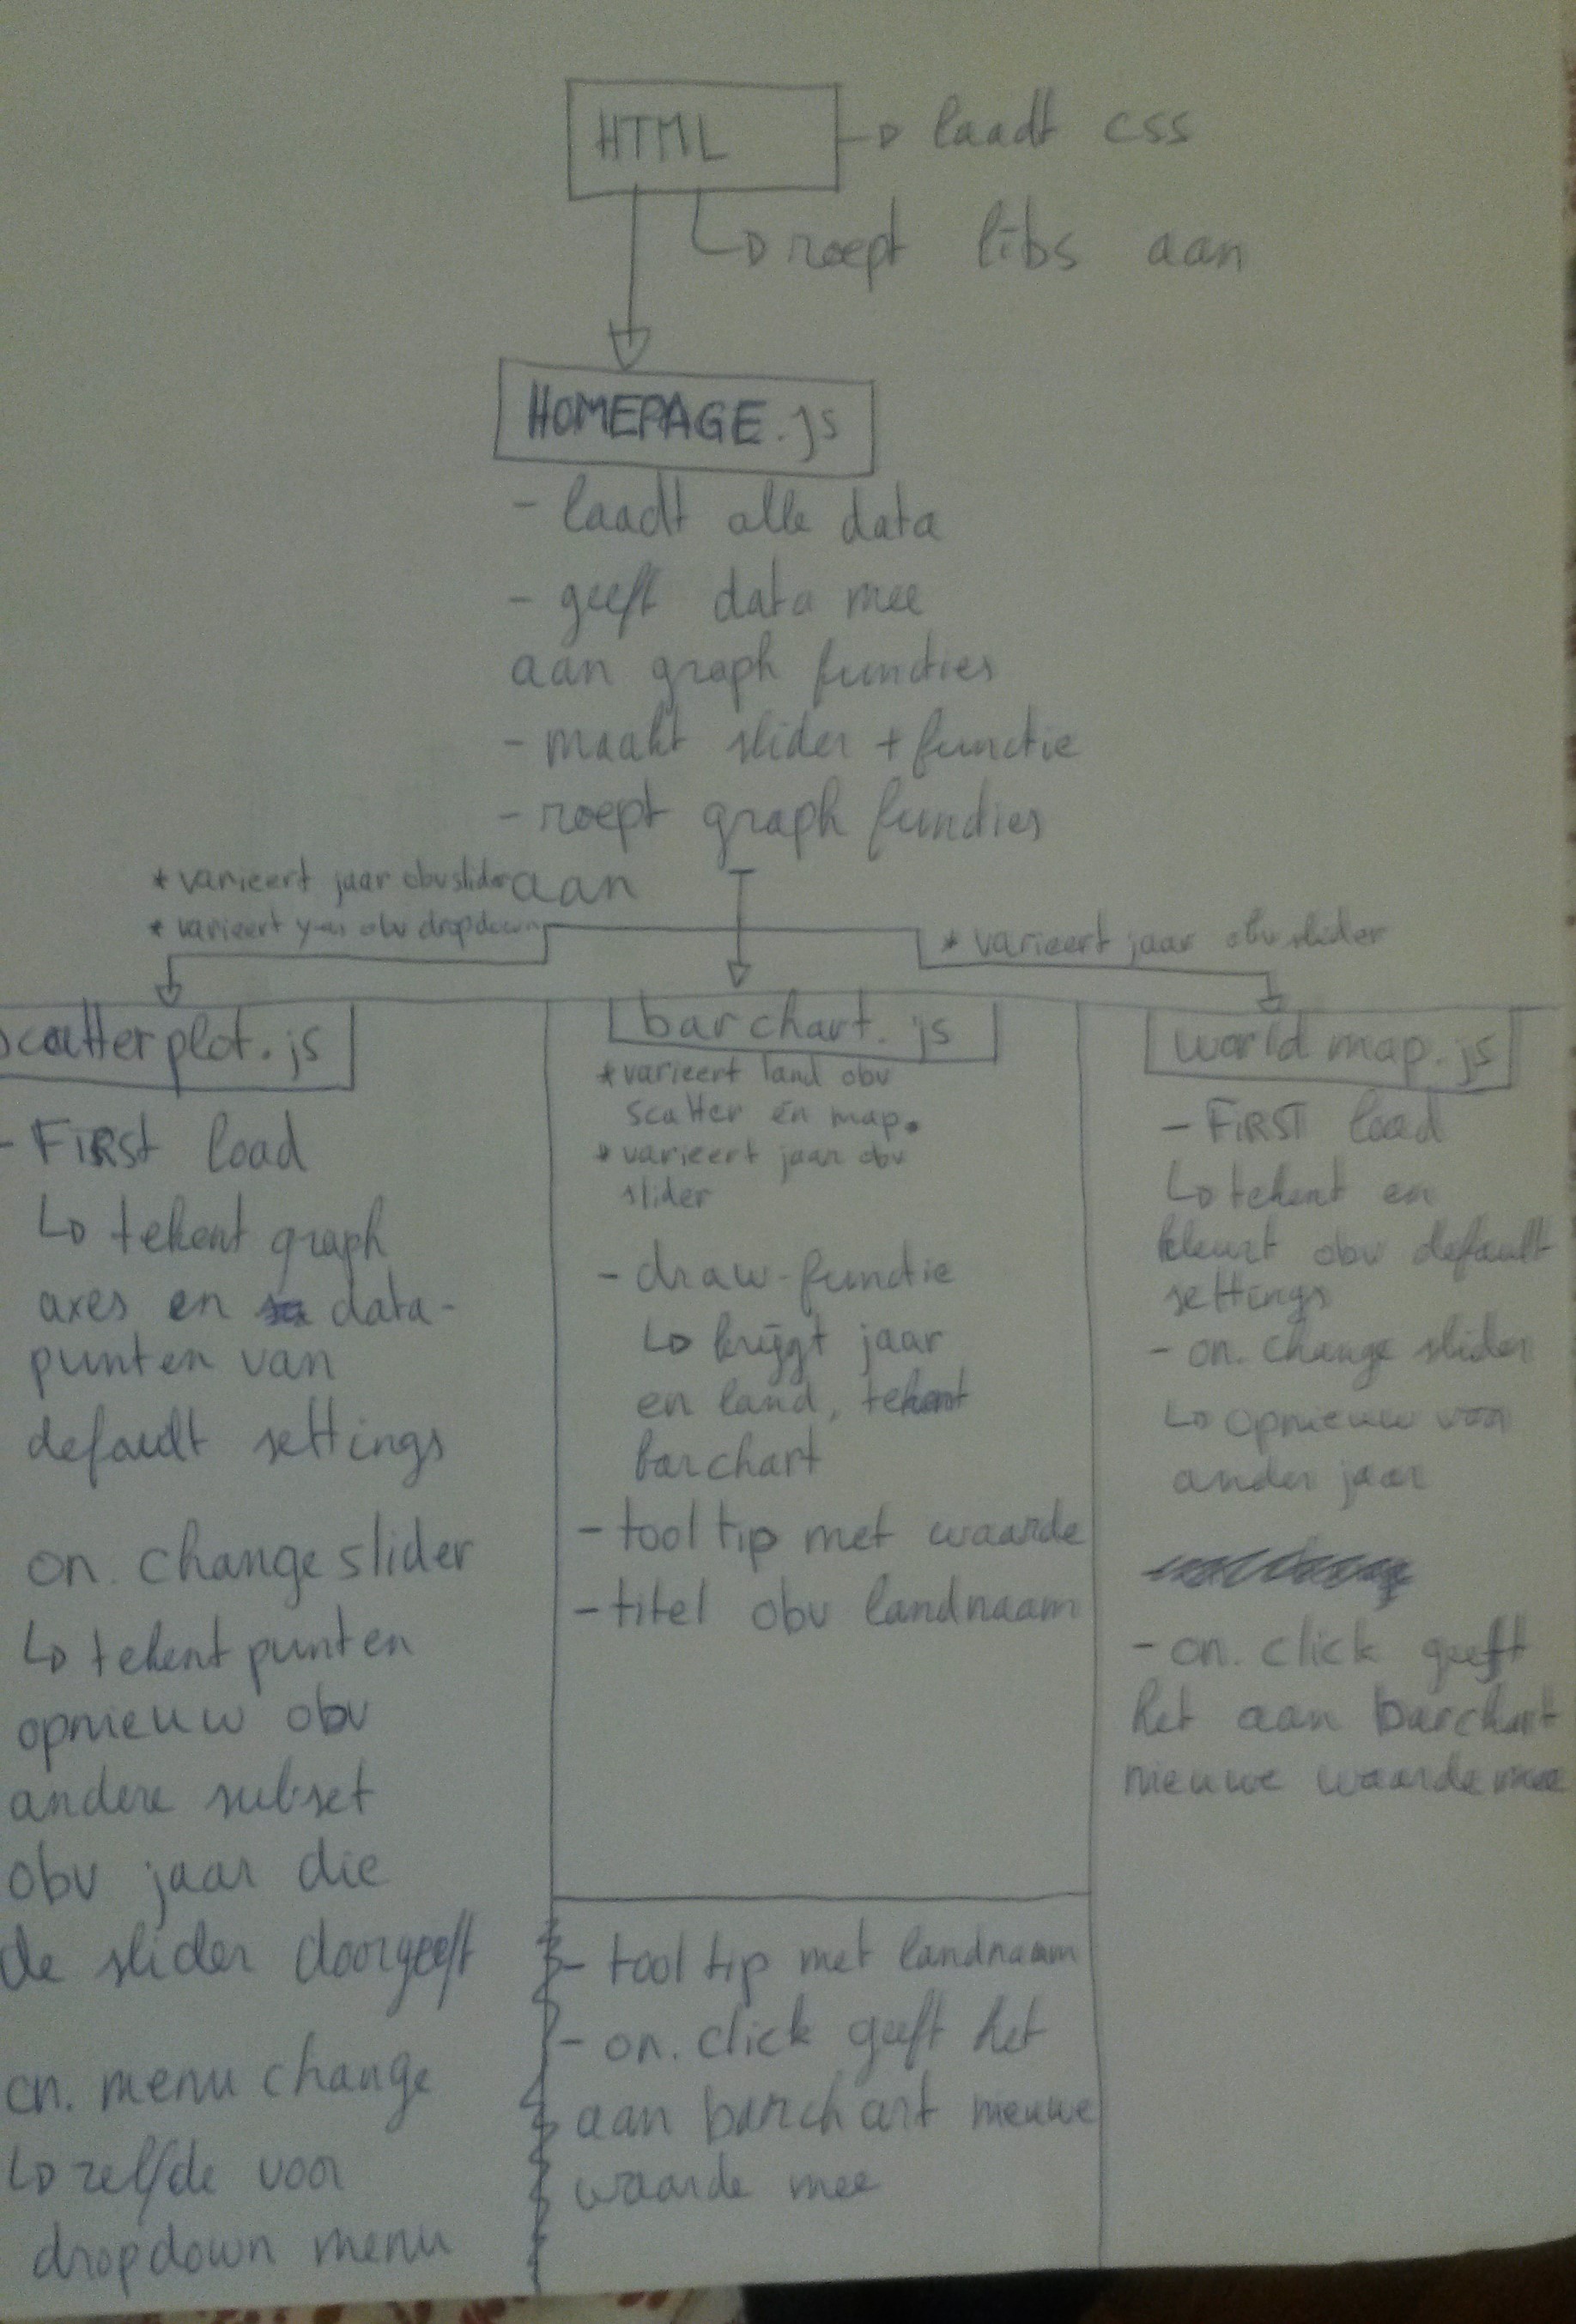 HTML
laadt css
roept libs aan
HOMEPAGE.js
- laadt alle data
- geeft data mee
aan graph functies
- maakt slider + functie
- roept graph functies
aan
* varieert jaar obv slider
* varieert y-as obv dropdown
* varieert jaar obv slider
scatterplot.js
- FIRST load
↳ tekent graph
axes en data-
punten van
default settings
on. change slider
↳ tekent punten
opnieuw obv
andere subset
obv jaar die
de slider doorgeeft
on. menu change
↳ zelfde voor
dropdown menu
barchart.js
* varieert land obv
scatter én map.
* varieert jaar obv
slider
- draw-functie
↳ krijgt jaar
en land, tekent
barchart
- tooltip met waarde
- titel obv landnaam
- tooltip met landnaam
- on. click geeft het
aan barchart nieuwe
waarde mee
world map.js
- FIRST load
↳ tekent en
kleurt obv default
settings
- on. change slider
↳ opnieuw van
ander jaar
- on. click geeft
het aan barchart
nieuwe waarde mee